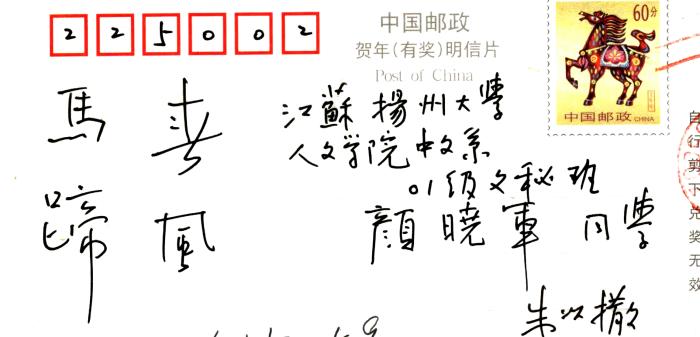 225002
中国邮政
贺年(有奖)明信片
Post of China
60分
中国邮政 CHINA
江蘇揚州大學
人文学院中文系
01级文秘班
顔曉軍同學
朱以撒
春風
馬蹄
自行剪下兑奖无效